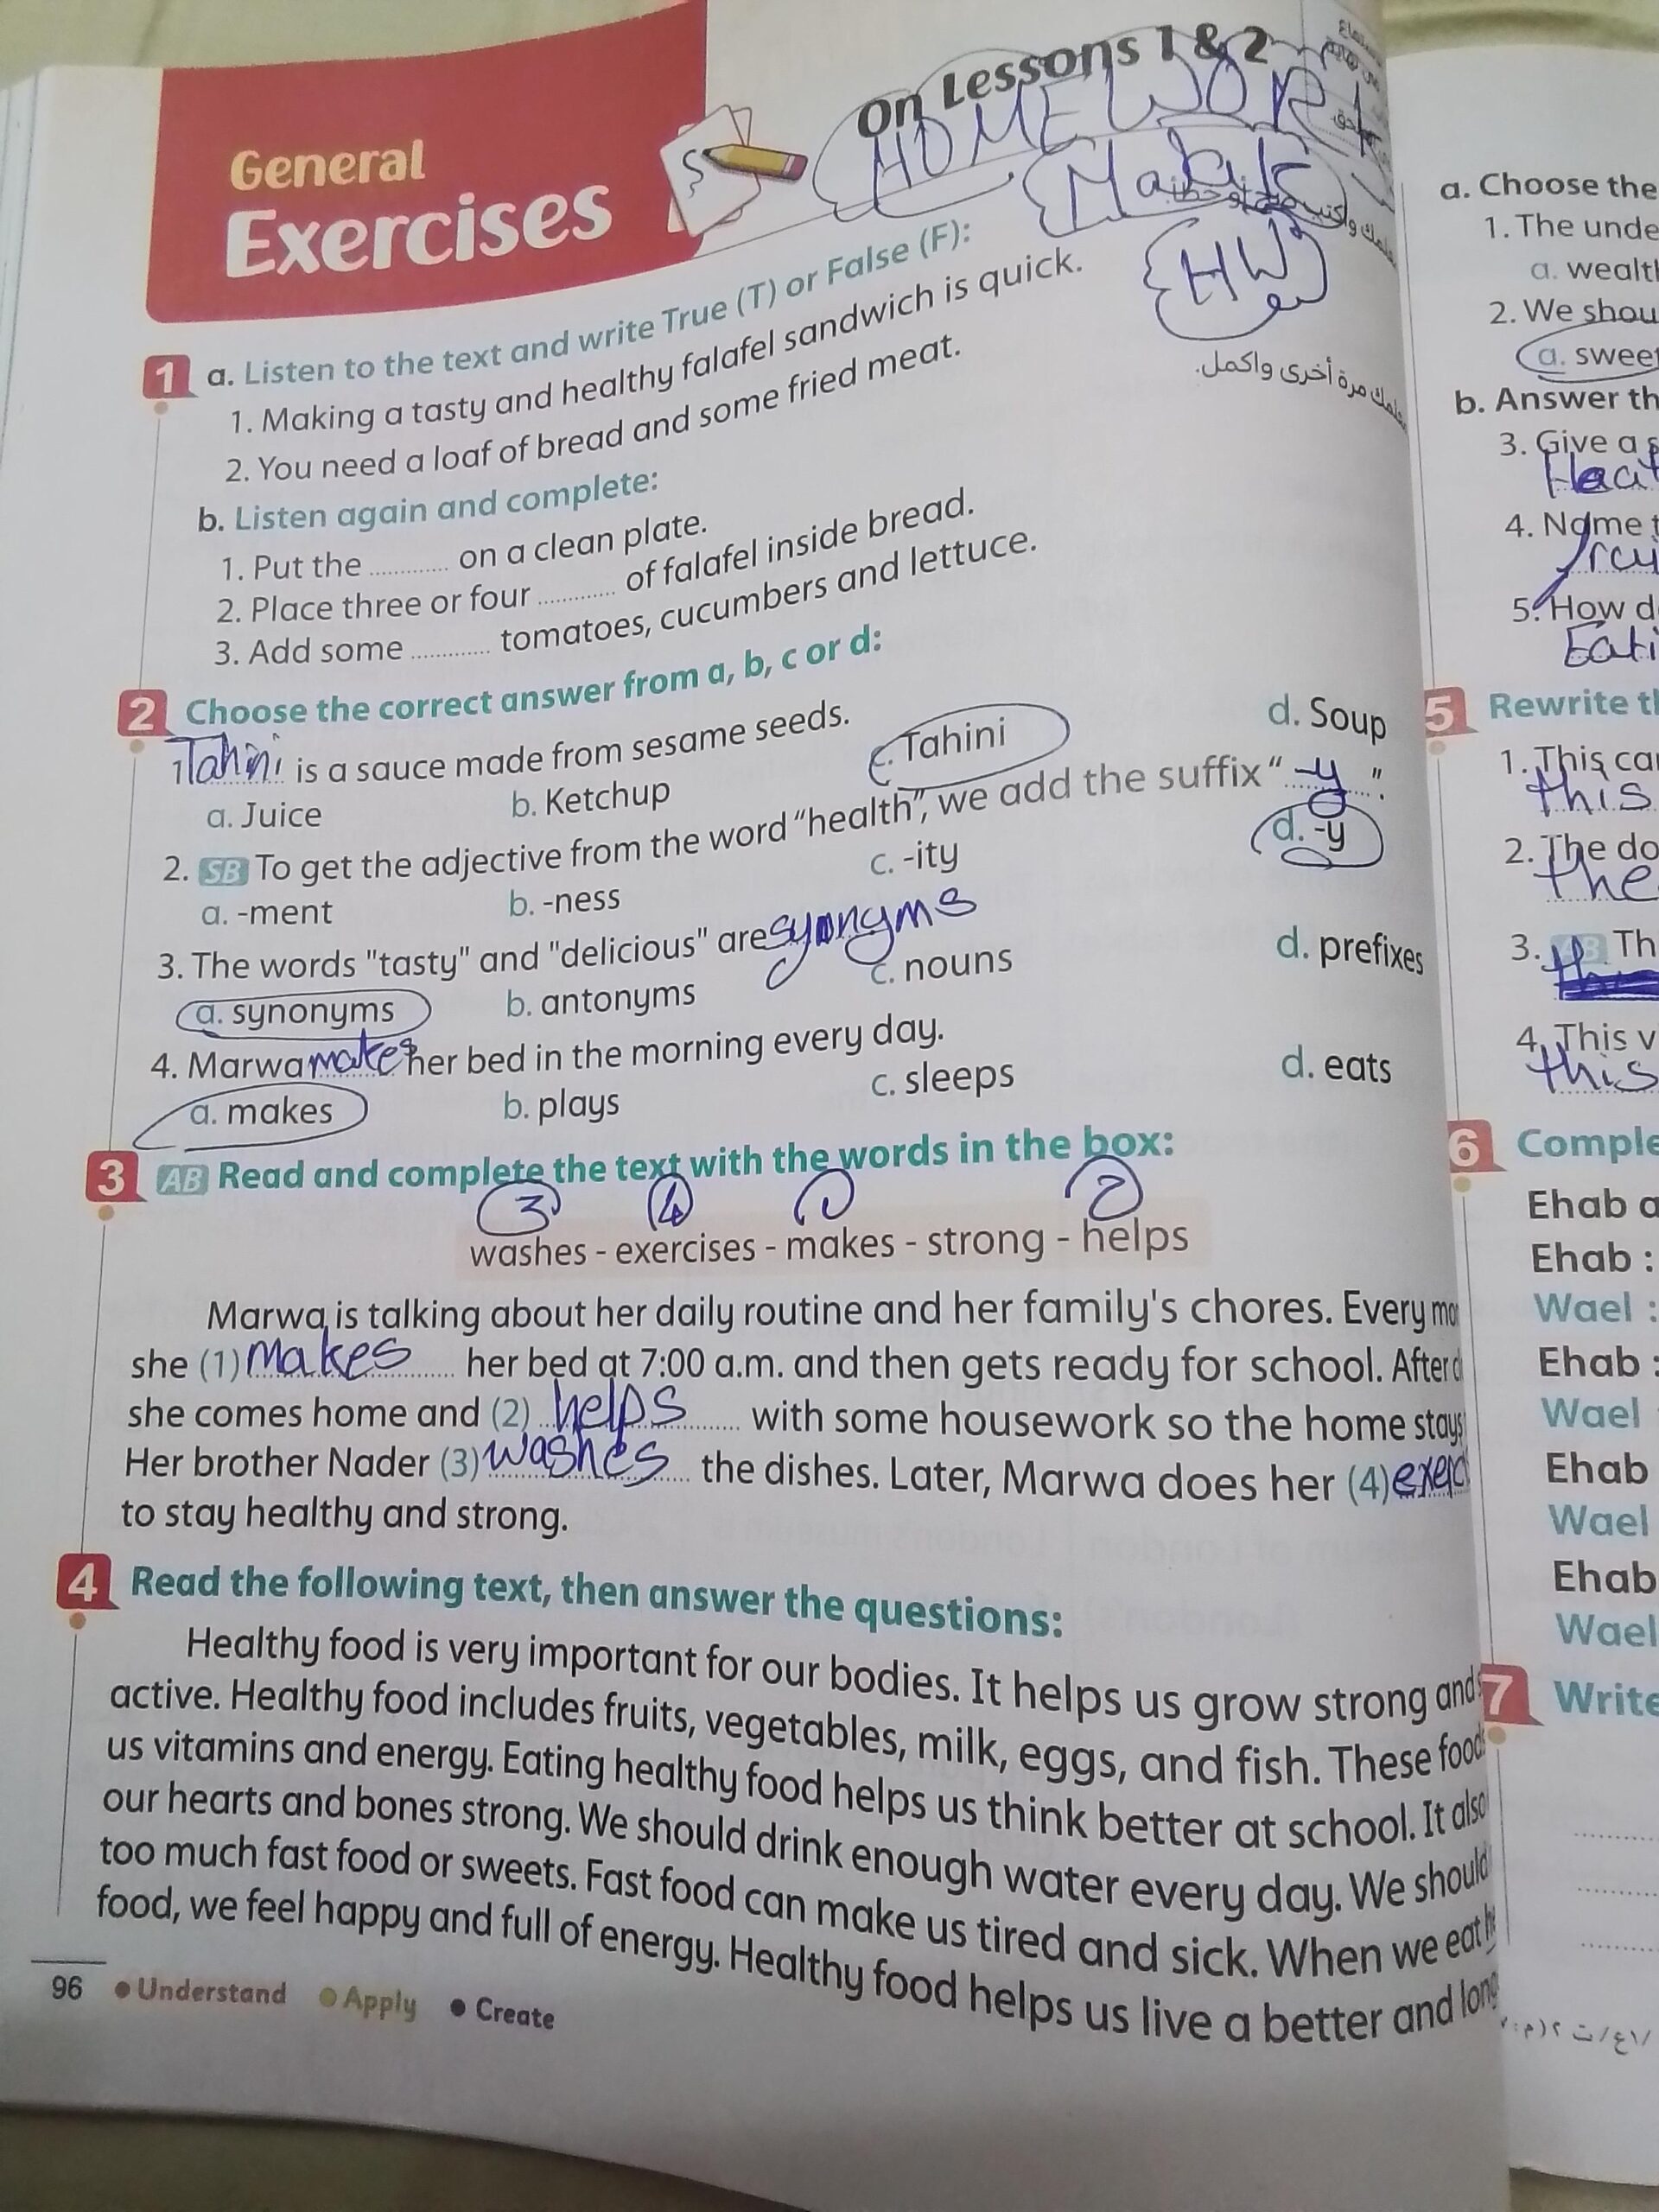 On Lessons 1 & 2
HOMEWORK
General
Exercises
{HW}
1 a. Listen to the text and write True (T) or False (F):
1. Making a tasty and healthy falafel sandwich is quick.
2. You need a loaf of bread and some fried meat.
مرة أخرى واكمل.
b. Listen again and complete:
1. Put the ............ on a clean plate.
2. Place three or four ............ of falafel inside bread.
3. Add some ............ tomatoes, cucumbers and lettuce.
2 Choose the correct answer from a, b, c or d:
1 Tahini is a sauce made from sesame seeds.
a. Juice b. Ketchup c. Tahini d. Soup
2. SB To get the adjective from the word "health", we add the suffix " -y ".
a. -ment b. -ness c. -ity d. -y
3. The words "tasty" and "delicious" are synonyms
a. synonyms b. antonyms c. nouns d. prefixes
4. Marwa makes her bed in the morning every day.
a. makes b. plays c. sleeps d. eats
3 AB Read and complete the text with the words in the box:
3 4 1 2
washes - exercises - makes - strong - helps
Marwa is talking about her daily routine and her family's chores. Every mo
she (1) makes her bed at 7:00 a.m. and then gets ready for school. After
she comes home and (2) helps with some housework so the home stays
Her brother Nader (3) washes the dishes. Later, Marwa does her (4) exerc
to stay healthy and strong.
4 Read the following text, then answer the questions:
Healthy food is very important for our bodies. It helps us grow strong and
active. Healthy food includes fruits, vegetables, milk, eggs, and fish. These food
us vitamins and energy. Eating healthy food helps us think better at school. It also
our hearts and bones strong. We should drink enough water every day. We should
too much fast food or sweets. Fast food can make us tired and sick. When we eat
food, we feel happy and full of energy. Healthy food helps us live a better and long
96 Understand Apply Create
a. Choose the
1. The unde
a. wealt
2. We shou
a. sweet
b. Answer th
3. Give a s
4. Name t
5. How d
Eati
5 Rewrite t
1. This car
this
2. The do
the
3. AB Th
4. This v
this
6 Comple
Ehab a
Ehab :
Wael :
Ehab :
Wael
Ehab
Wael
Ehab
Wael
7 Write